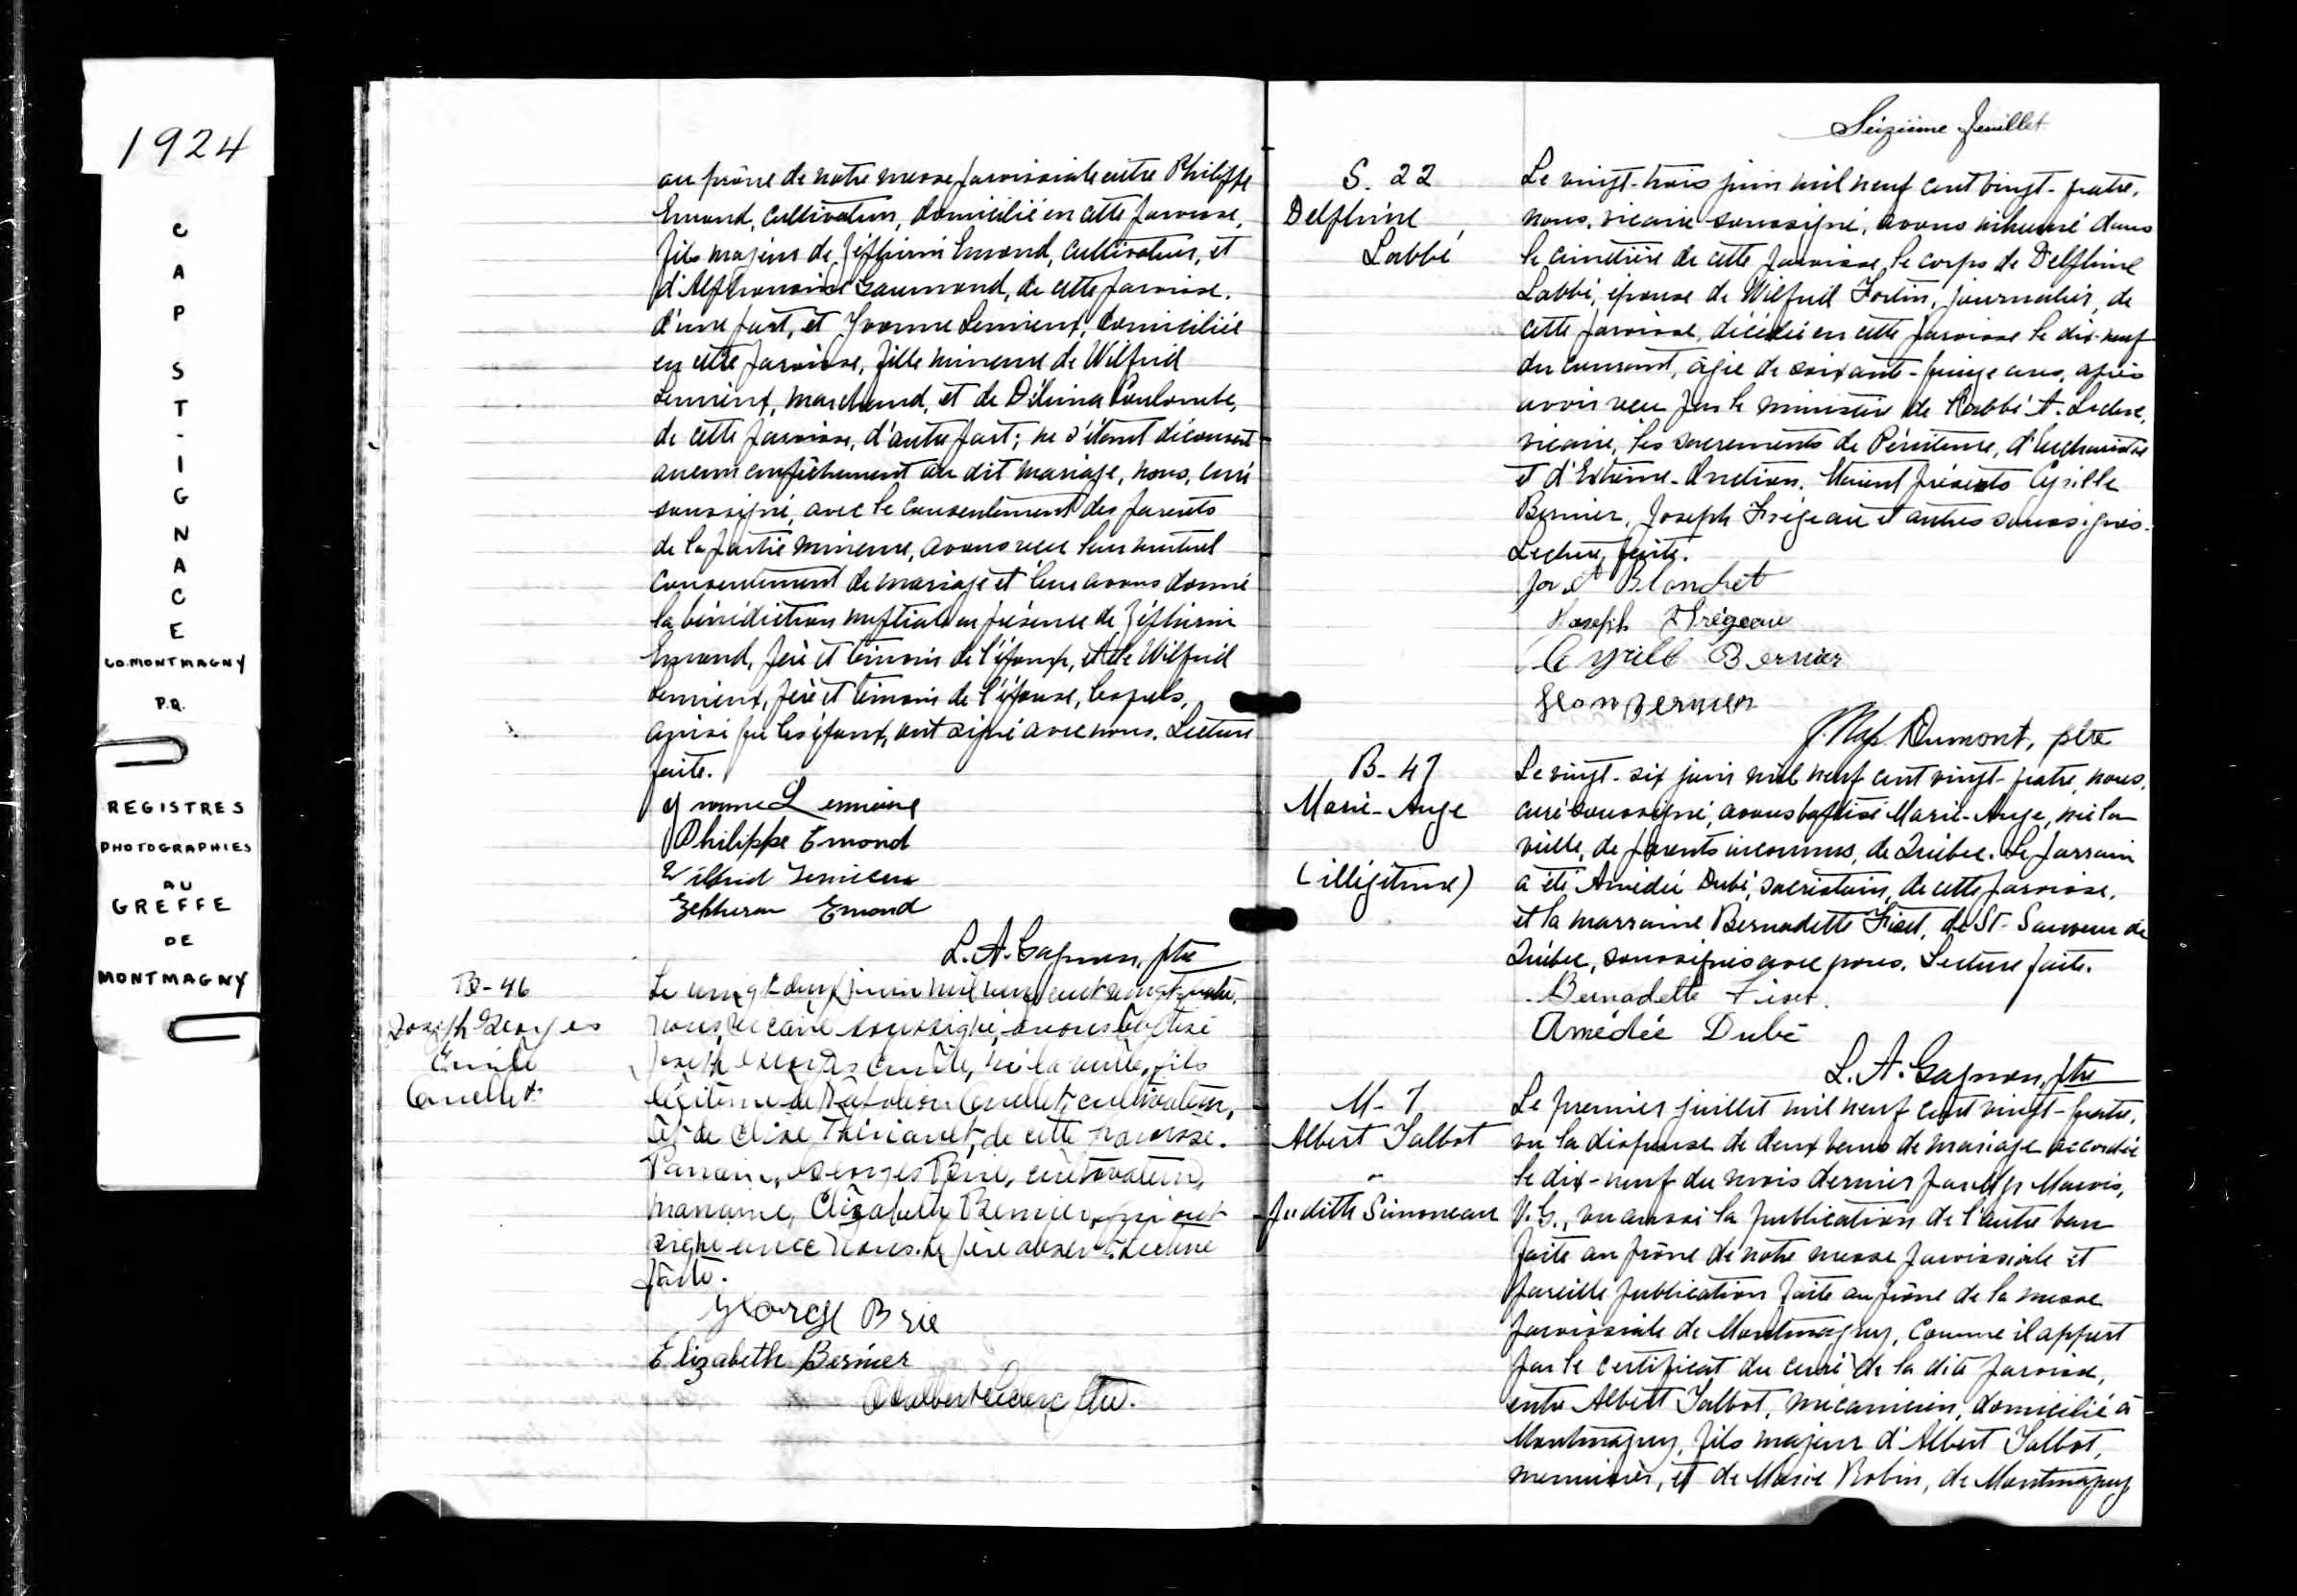 1924
CAP ST-IGNACE
CO. MONTMAGNY
P.Q.
REGISTRES
PHOTOGRAPHIES
AU
GREFFE
DE
MONTMAGNY
au prône de notre messe paroissiale entre Philippe
Emond, cultivateur, domicilié en cette paroisse,
fils majeur de Zéphirin Emond, cultivateur, et
d'Alphonsine Gaumond, de cette paroisse,
d'une part, et Yvonne Lemieux, domiciliée
en cette paroisse, fille mineure de Wilfrid
Lemieux, marchand, et de Délima Coulombe,
de cette paroisse, d'autre part; ne s'étant découvert
aucun empêchement au dit mariage, nous, curé
soussigné, avec le consentement des parents
de la partie mineure, avons reçu leur mutuel
consentement de mariage et leur avons donné
la bénédiction nuptiale en présence de Zéphirin
Emond, père et témoin de l'époux, et de Wilfrid
Lemieux, père et témoin de l'épouse, lesquels,
ainsi que les époux, ont signé avec nous. Lecture
faite.
Yvonne Lemieux
Philippe Emond
Wilfrid Lemieux
Zephirin Emond
L. A. Gagnon, ptre
B-46
Joseph Georges
Emile
Ouellet
Le vingt-deux juin mil neuf cent vingt-quatre,
nous, vicaire soussigné, avons baptisé
Joseph Georges Emile, né la veille, fils
légitime de Napoléon Ouellet, cultivateur,
et de Elise Thériault, de cette paroisse.
Parrain, Georges Brie, cultivateur,
marraine, Elizabeth Bernier, qui ont
signé avec nous. Le père absent. Lecture
faite.
George Brie
Elizabeth Bernier
Adalbert Leclerc ptre.
Seizième feuillet
S. 22
Delphine
Labbé
Le vingt-trois juin mil neuf cent vingt-quatre,
nous, vicaire soussigné, avons inhumé dans
le cimetière de cette paroisse, le corps de Delphine
Labbé, épouse de Wilfrid Fortin, journalier, de
cette paroisse, décédée en cette paroisse le dix-neuf
du courant, âgée de soixante-quinze ans, après
avoir reçu par le ministère de l'abbé A. Leclerc,
vicaire, les sacrements de Pénitence, d'Eucharistie
et d'Extrême-Onction. Etaient présents Cyrille
Bernier, Joseph Frégeau et autres soussignés.
Lecture faite.
Jos A Blanchet
Joseph Frégeau
Cyrille Bernier
Léon Bernier
J. Nap. Dumont, ptre
B-47
Marie-Ange
(illégitime)
Le vingt-six juin mil neuf cent vingt-quatre, nous,
curé soussigné, avons baptisé Marie-Ange, née la
veille, de parents inconnus, de Québec. Le parrain
a été Amédée Dubé, sacristain, de cette paroisse,
et la marraine Bernadette Fiset, de St-Sauveur de
Québec, soussignés avec nous. Lecture faite.
Bernadette Fiset.
Amédée Dubé
L. A. Gagnon, ptre
M-7
Albert Talbot
Judith Simoneau
Le premier juillet mil neuf cent vingt-quatre,
vu la dispense de deux bans de mariage accordée
le dix-neuf du mois dernier par Mgr Marois,
V. G., vu aussi la publication de l'autre ban
faite au prône de notre messe paroissiale et
pareille publication faite au prône de la messe
paroissiale de Montmagny, comme il appert
par le certificat du curé de la dite paroisse,
entre Albert Talbot, mécanicien, domicilié à
Montmagny, fils majeur d'Albert Talbot,
menuisier, et de Marie Robin, de Montmagny